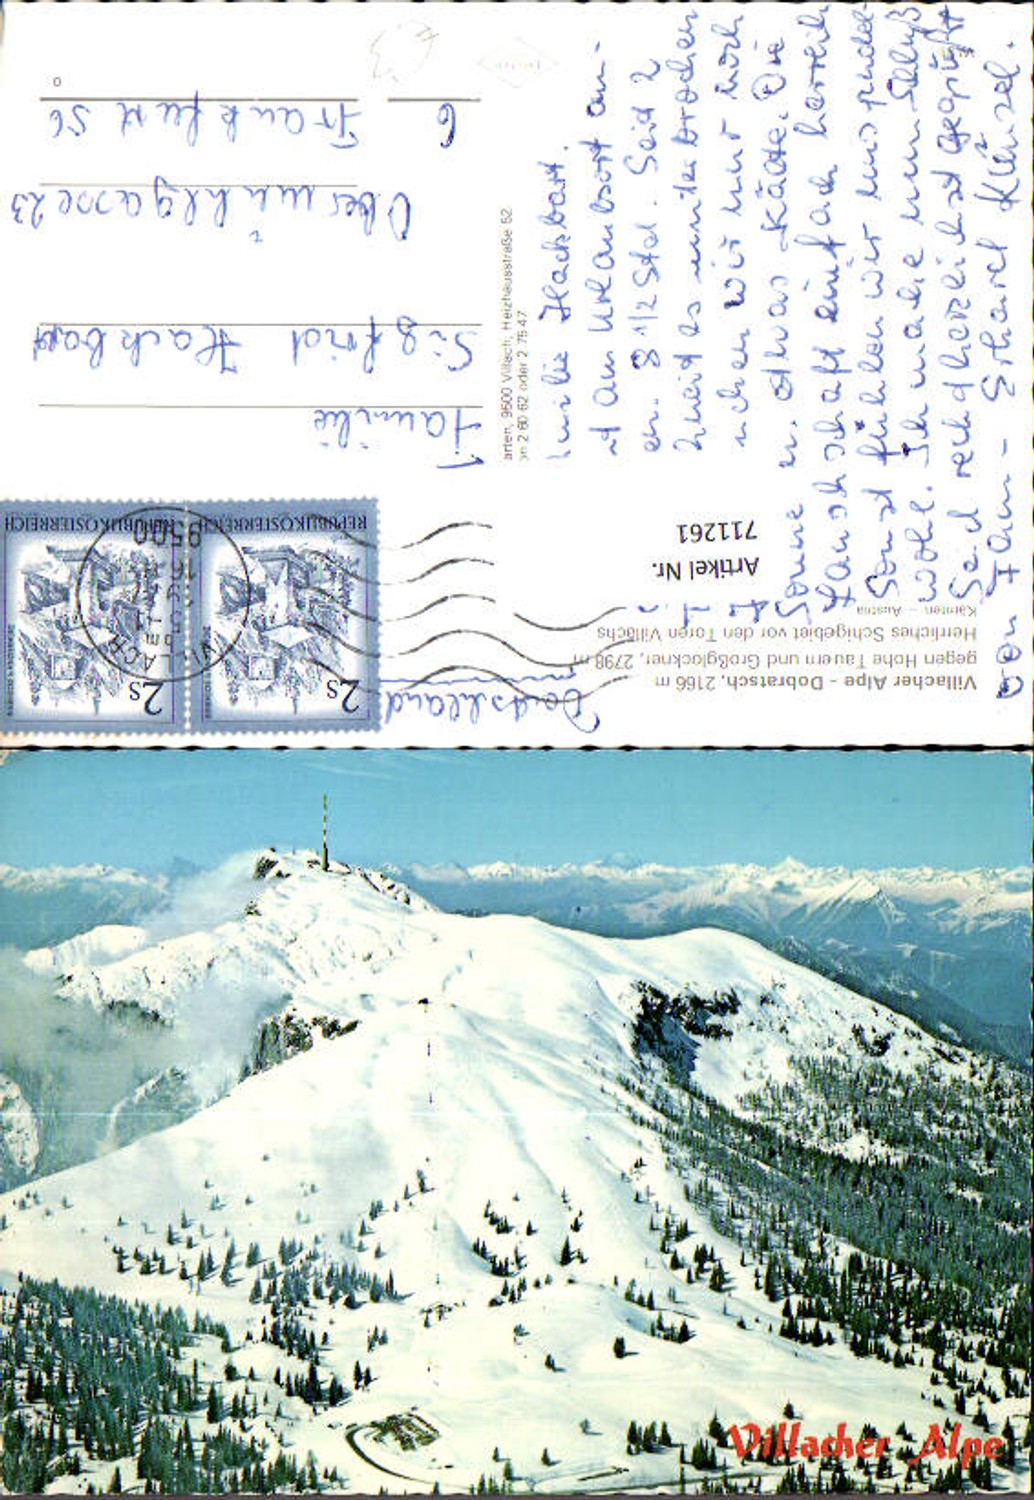 Villacher Alpe - Dobratsch, 2166 m
gegen Hohe Tauern und Großglockner, 2798 m
Herrliches Schigebiet vor den Toren Villachs
Kärnten – Austria
Artikel Nr.
711261
arten, 9500 Villach, Heizhausstraße 52
on 2 60 62 oder 2 75 47
milie Hackbart.
d am Urlaubsort an-
en. 8 1/2 Std. Seit 2
neit es ununterbrochen
wir nur noch
Sonne etwas Kälte. Die
Landschaft einfach herrlich
Sonst fühlen wir uns pudel-
wohl. Ich mache nun Schluß
Seid recht herzlichst gegrüßt
von Fam. Erhard Künzel.
REPUBLIK ÖSTERREICH
2S
REPUBLIK ÖSTERREICH
2S
9500
VILLACH
Familie
Sigfrid Hackbart
Obermühlgasse 23
6 Frankfurt 56
Deutschland
Villacher Alpe